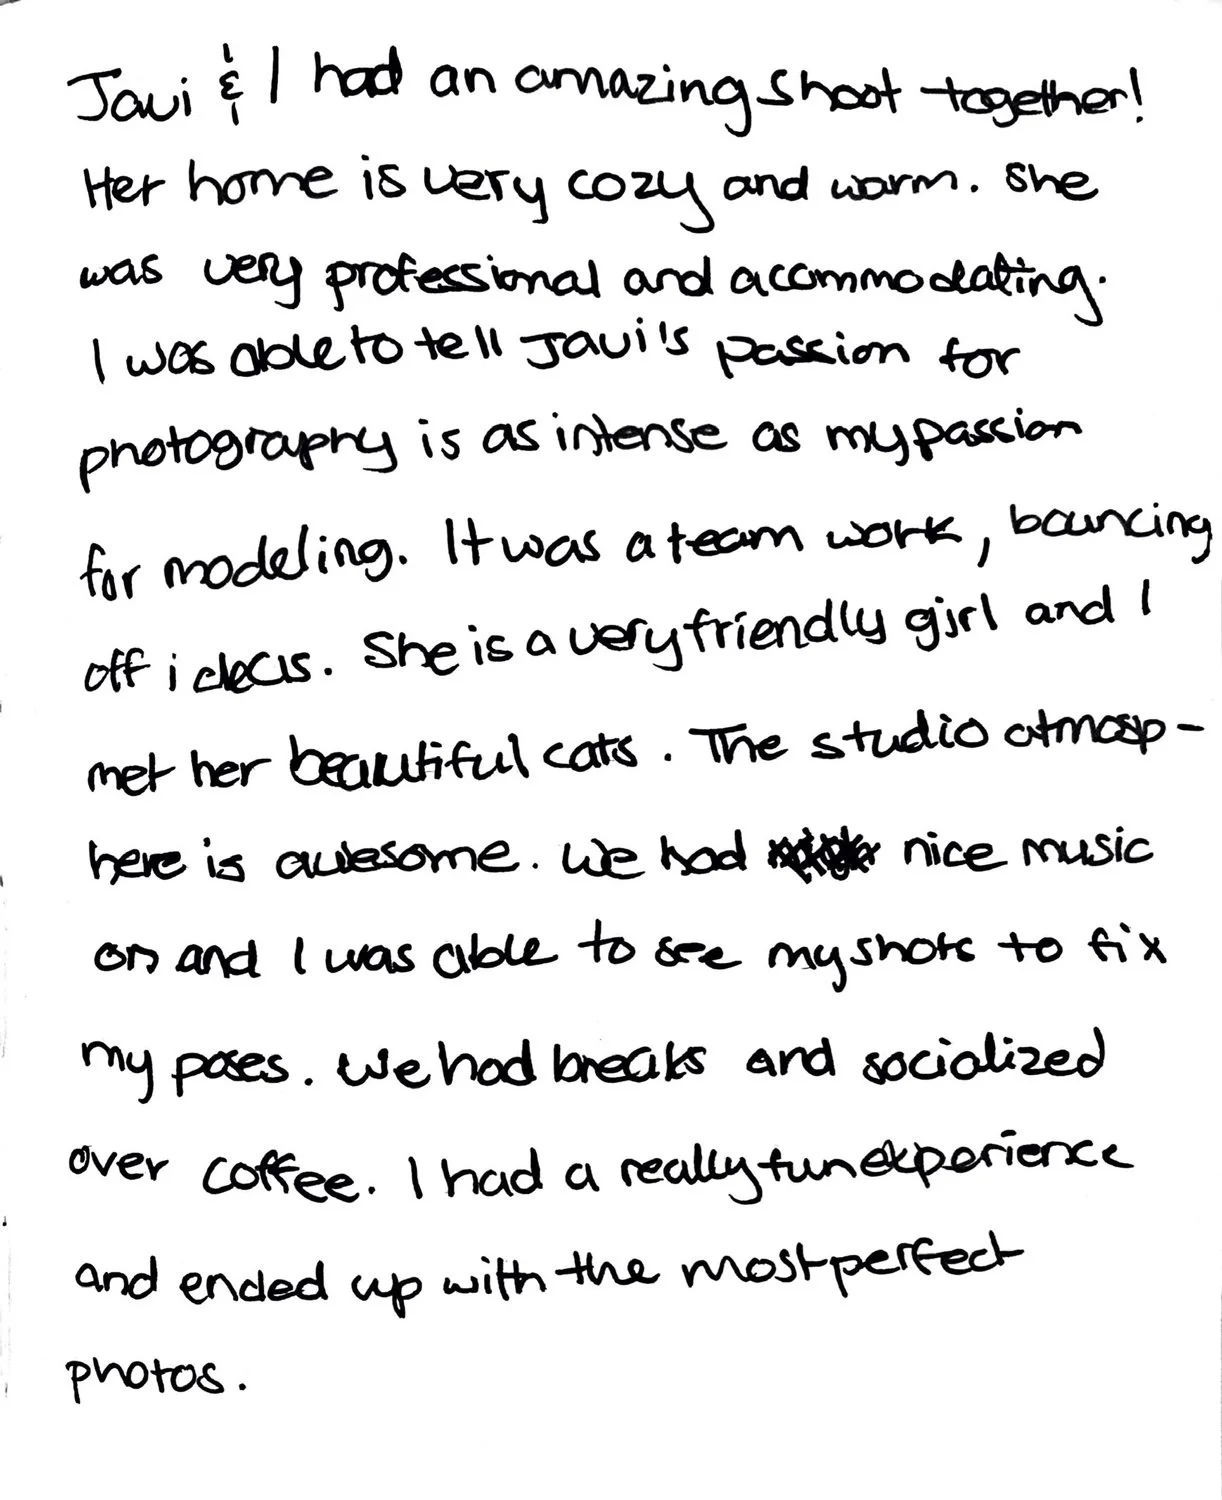 Javi & I had an amazing shoot together!
Her home is very cozy and warm. She
was very professional and accommodating.
I was able to tell Javi's passion for
photography is as intense as my passion
for modeling. It was a team work, bouncing
off ideas. She is a very friendly girl and I
met her beautiful cats. The studio atmosp-
here is awesome. We had nice music
on and I was able to see my shots to fix
my poses. We had breaks and socialized
over coffee. I had a really fun experience
and ended up with the most perfect
photos.